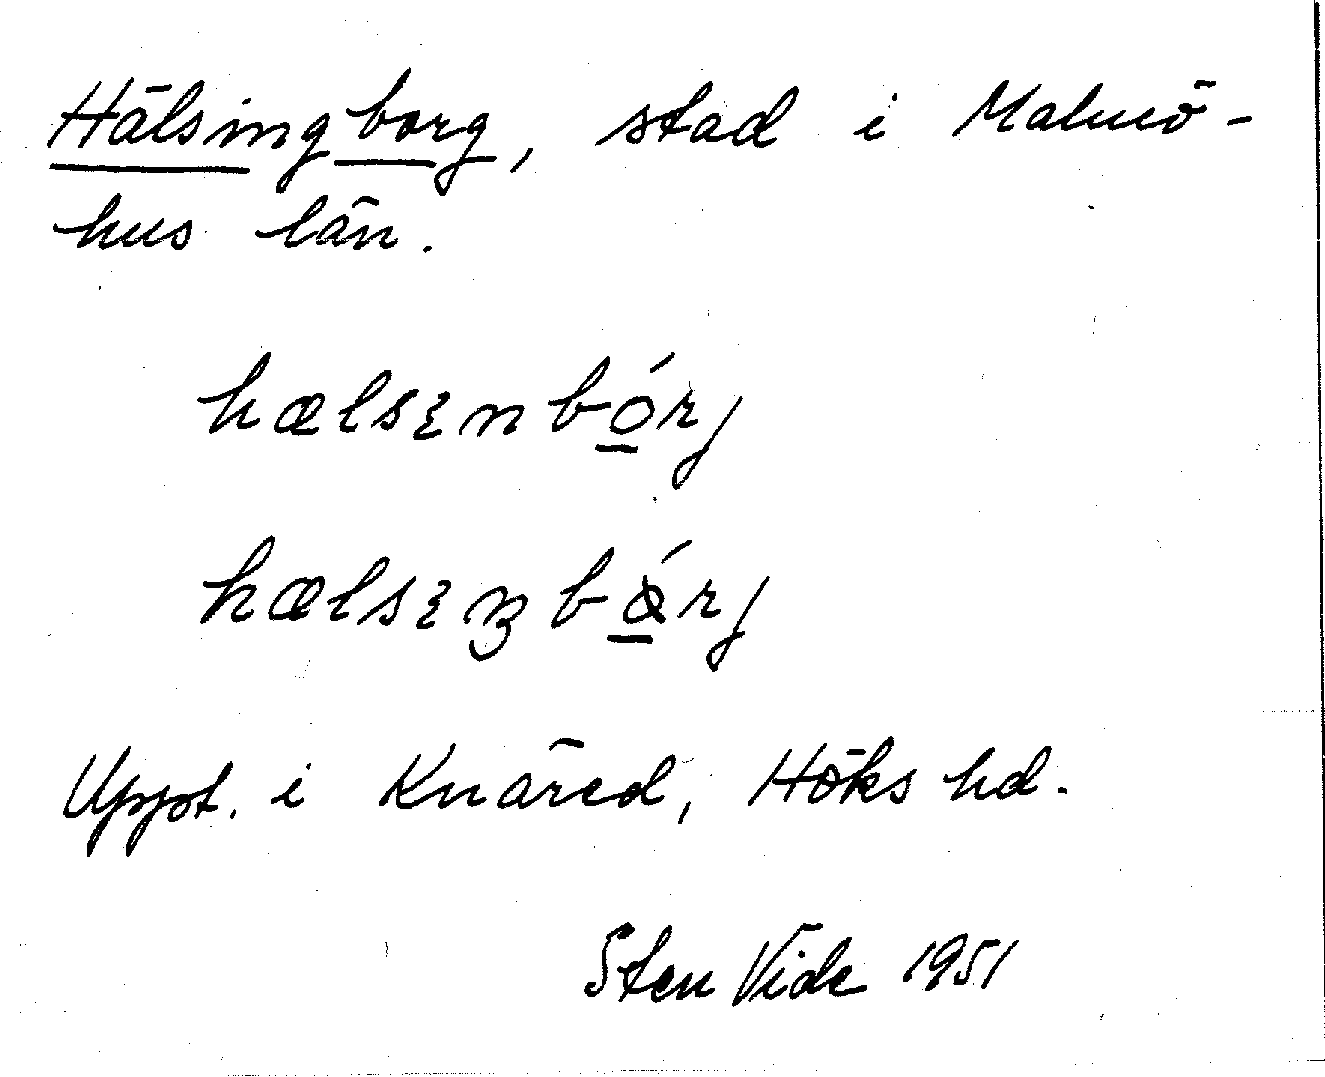 Hälsingborg, stad i Malmö-
hus län.
hælsɛnbórj
hælsɛŋbǻrj
Uppt. i Knäred, Höks hd.
Sten Vide 1951